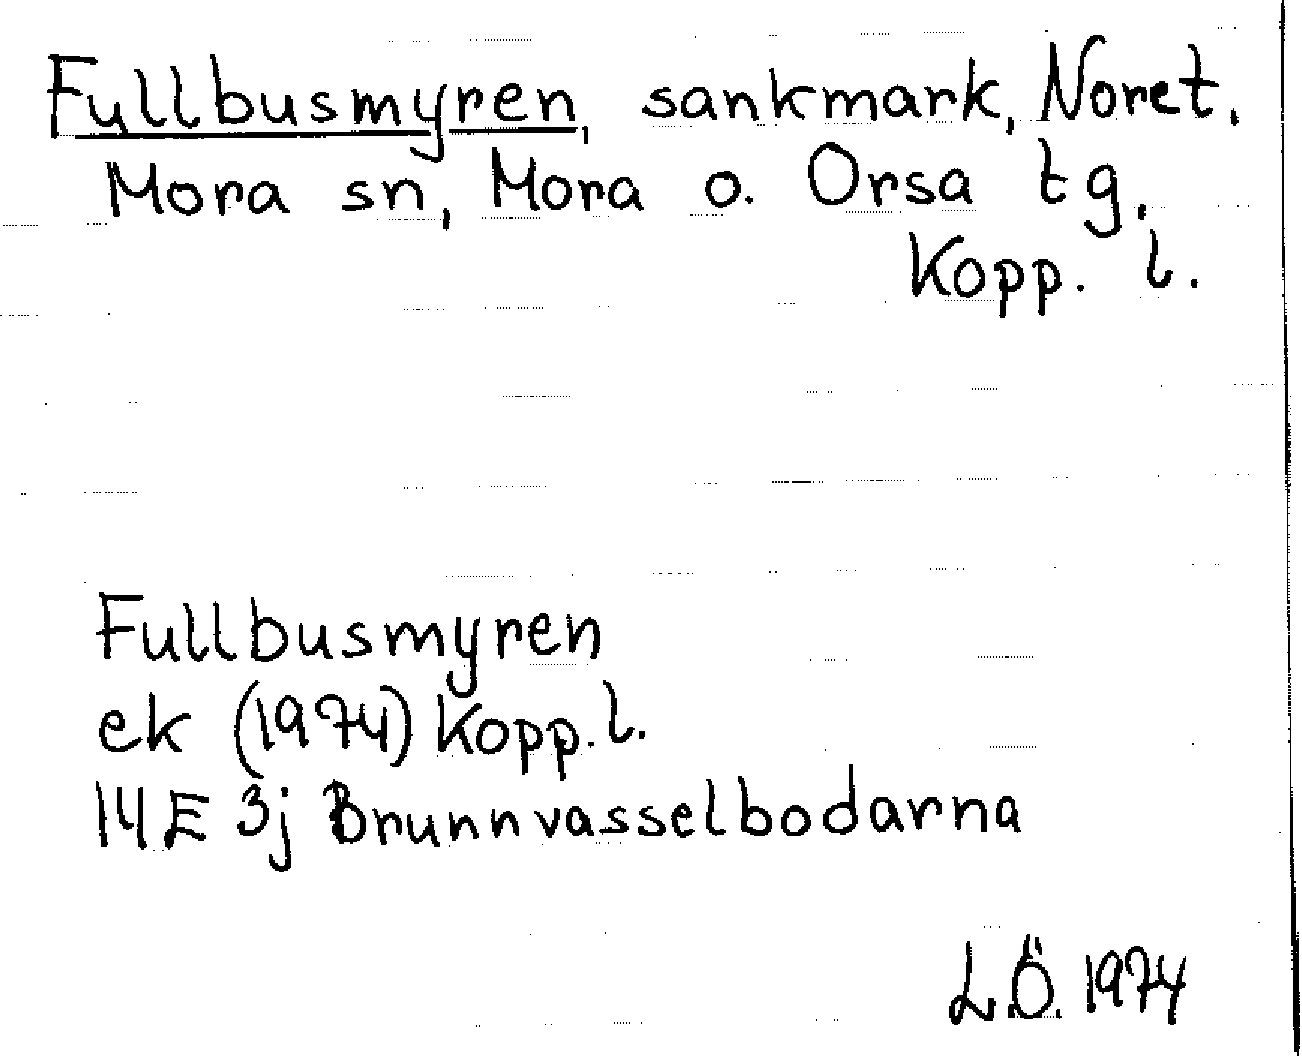 Fullbusmyren, sankmark, Noret.
Mora sn, Mora o. Orsa tg.
Kopp. l.
Fullbusmyren
ek (1974) Kopp. l.
14E 3j Brunnvasselbodarna
L.Ö. 1974